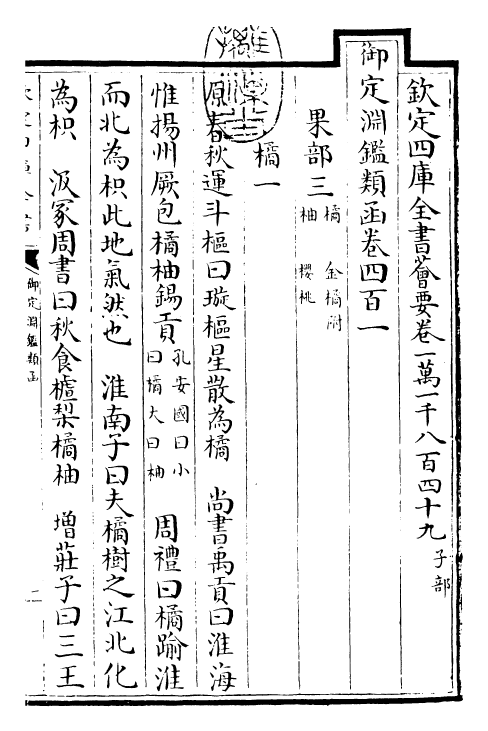 欽定四庫全書薈要卷一萬一千八百四十九 子部
御定淵鑑類函卷四百一
果部三 橘 金橘附
柚 櫻桃
橘一
原春秋運斗樞曰璇樞星散為橘 尚書禹貢曰淮海
惟揚州厥包橘柚錫貢 孔安國曰小
曰橘大曰柚 周禮曰橘踰淮
而北為枳此地氣然也 淮南子曰夫橘樹之江北化
為枳 汲冢周書曰秋食樝梨橘柚 增莊子曰三王
御定淵鑑類函